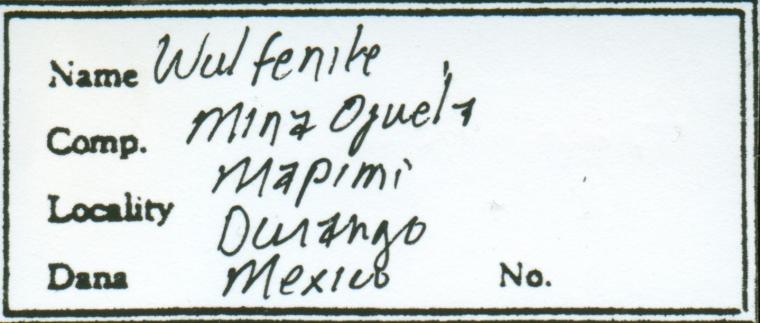 Name Wulfenite
Comp. Mina Ojuela
Mapimi
Locality
Durango
Dana Mexico No.